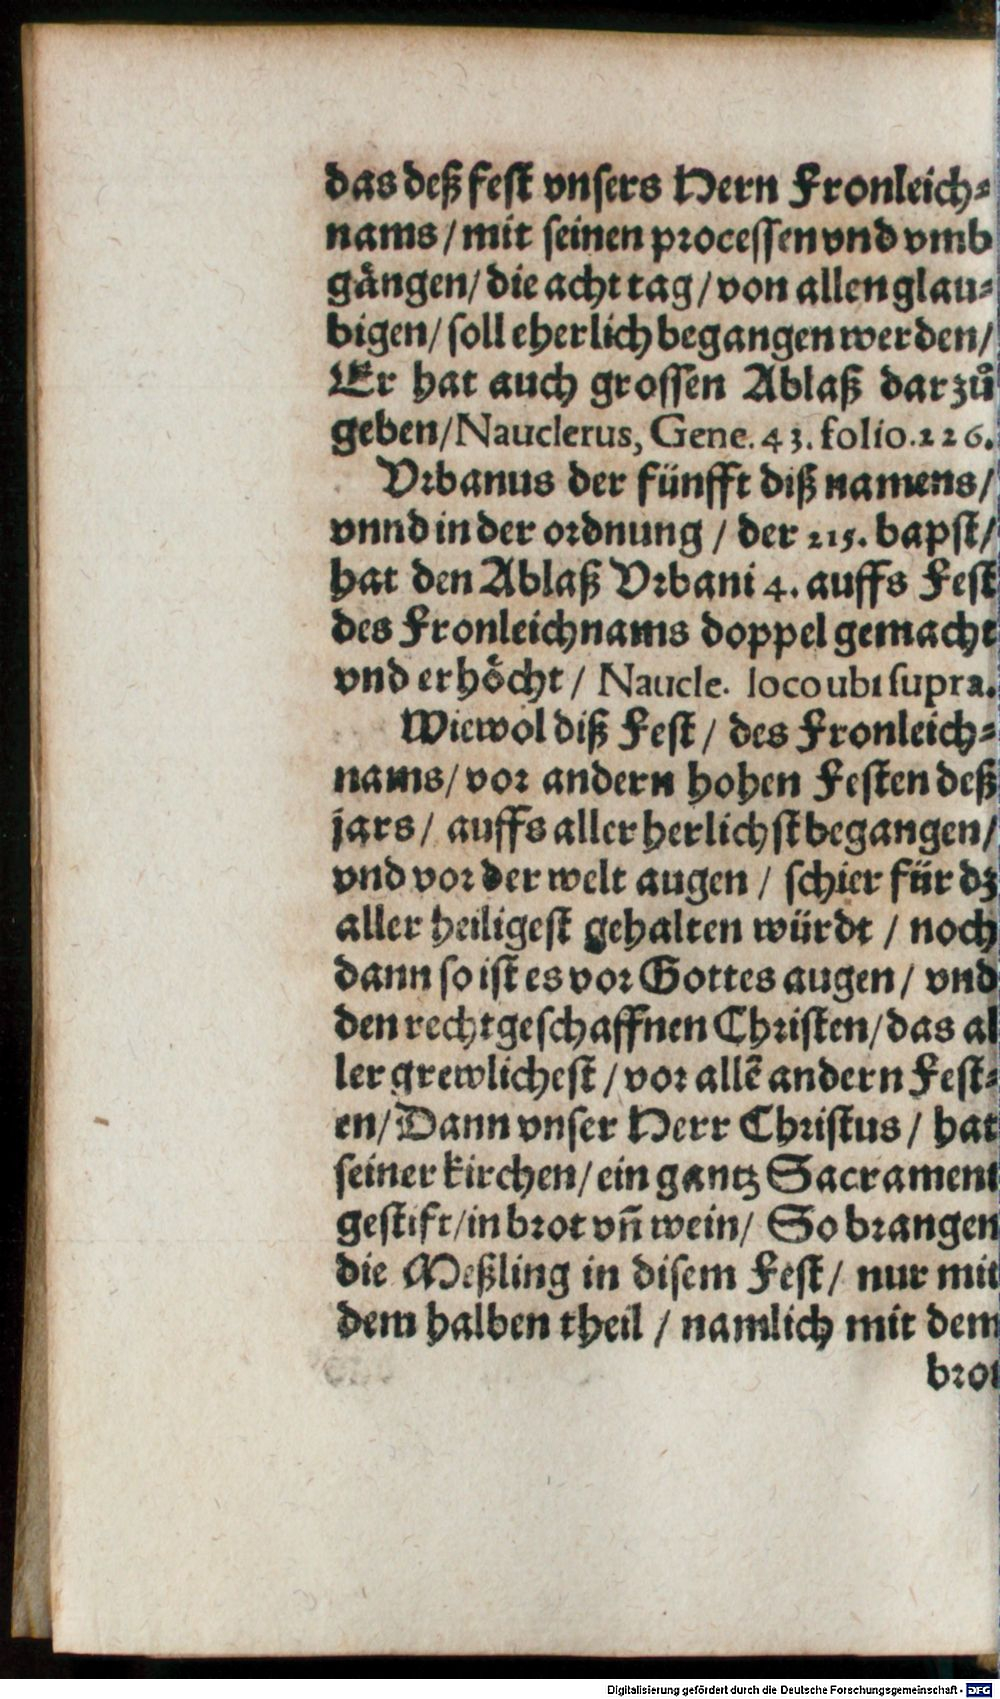 das deß fest vnsers Hern Fronleich⸗
nams / mit seinen processen vnd vmb
gaͤngen / die acht tag / von allen glau⸗
bigen / soll eherlich begangen werden /
Er hat auch grossen Ablaß dar zuͦ
geben / Nauclerus, Gene. 43. folio. 226.
Vrbanus der fünfft diß namens /
vnnd in der ordnung / der 215. bapst /
hat den Ablaß Vrbani 4. auffs Fest
des Fronleichnams doppel gemacht
vnd erhoͤcht / Naucle. loco ubi supra.
Wiewol diß Fest / des Fronleich⸗
nams / vor andern hohen Festen deß
jars / auffs aller herlichst begangen /
vnd vor der welt augen / schier für dz
aller heiligest gehalten würdt / noch
dann so ist es vor Gottes augen / vnd
den rechtgeschaffnen Christen / das al
ler grewlichest / vor allē andern Fest⸗
en / Dann vnser Herr Christus / hat
seiner kirchen / ein gantz Sacrament
gestift / in brot vñ wein / So brangen
die Meßling in disem Fest / nur mit
dem halben theil / namlich mit dem
brot
Digitalisierung gefördert durch die Deutsche Forschungsgemeinschaft - DFG